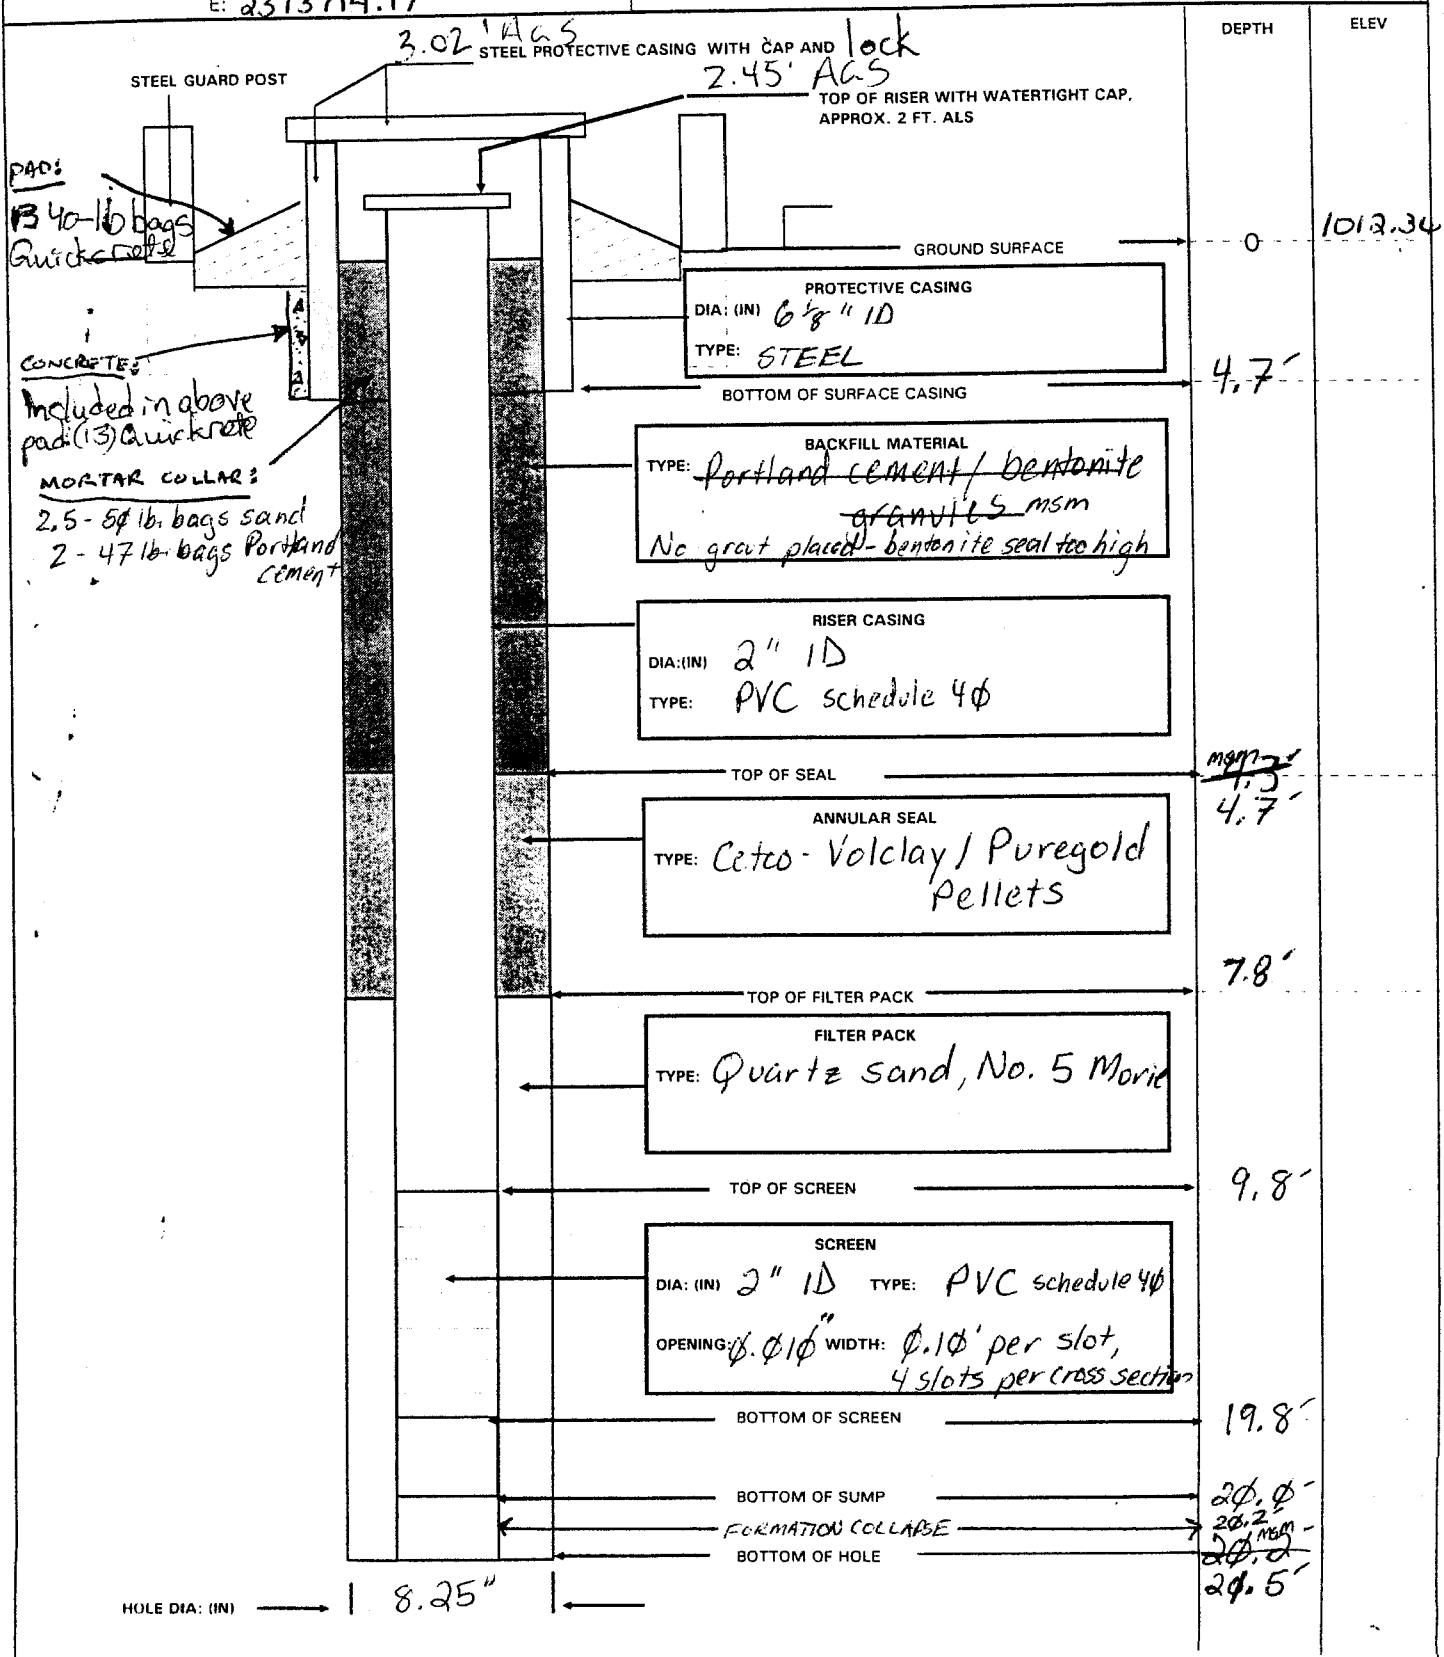 E: 2313714.17
DEPTH
ELEV
3.02' AGS
STEEL PROTECTIVE CASING WITH CAP AND lock
STEEL GUARD POST
2.45' AGS
TOP OF RISER WITH WATERTIGHT CAP,
APPROX. 2 FT. ALS
PAD:
13 40-lb bags
Quickcrete
GROUND SURFACE
0
1012.34
PROTECTIVE CASING
DIA: (IN) 6 1/8" ID
TYPE: STEEL
CONCRETE:
Included in above
pad (13) Quickrete
BOTTOM OF SURFACE CASING
4.7'
MORTAR COLLAR:
2.5 - 5Ø lb. bags sand
2 - 47 lb. bags Portland
cement
BACKFILL MATERIAL
TYPE: Portland cement / bentonite
granules msm
No grout placed - bentonite seal too high
RISER CASING
DIA:(IN) 2" ID
TYPE: PVC schedule 4Ø
TOP OF SEAL
msm
4.7'
ANNULAR SEAL
TYPE: Cetco - Volclay / Puregold
Pellets
TOP OF FILTER PACK
7.8'
FILTER PACK
TYPE: Quartz sand, No. 5 Morie
TOP OF SCREEN
9.8'
SCREEN
DIA: (IN) 2" ID TYPE: PVC schedule 4Ø
OPENING: Ø.Ø1Ø" WIDTH: Ø.1Ø' per slot,
4 slots per cross section
BOTTOM OF SCREEN
19.8'
BOTTOM OF SUMP
2Ø.Ø'
FORMATION COLLAPSE
2Ø.2'
BOTTOM OF HOLE
2Ø.2 msm
2Ø.5'
HOLE DIA: (IN)
8.25"